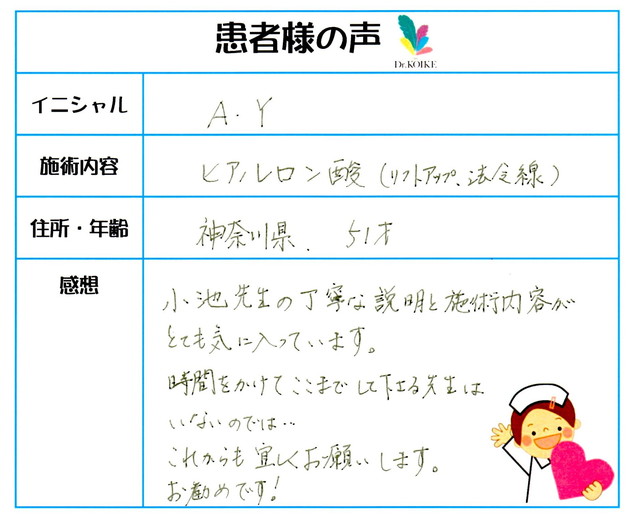 患者様の声
Dr.KOIKE
イニシャル
A.Y
施術内容
ヒアルロン酸(リフトアップ、法令線)
住所・年齢
神奈川県. 51才
感想
小池先生の丁寧な説明と施術内容が
とても気に入っています。
時間をかけてここまでして下さる先生は
いないのでは‥
これからも宜しくお願いします。
お勧めです!